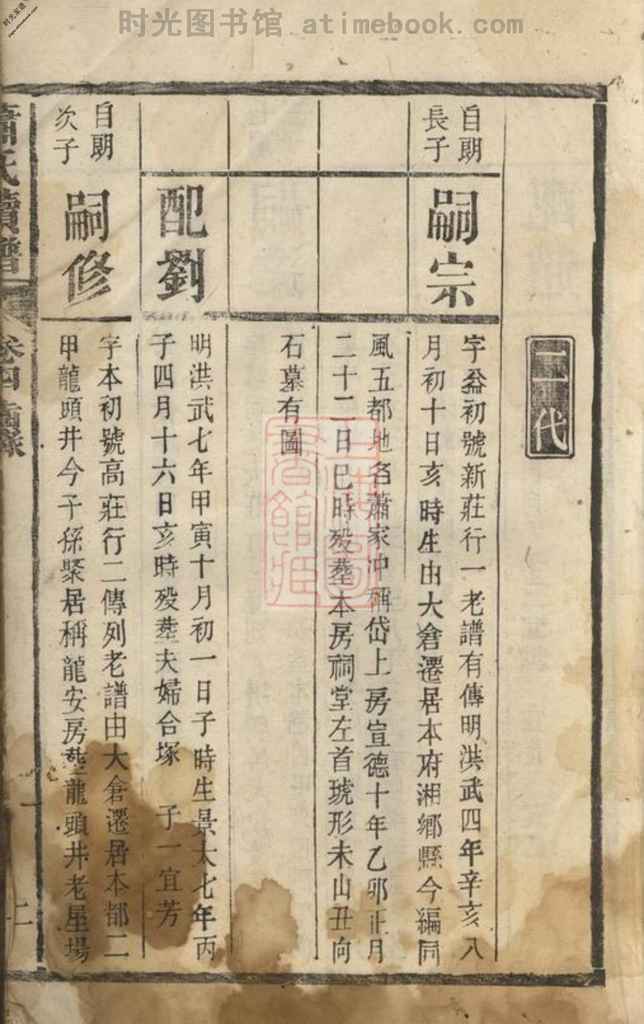 时光图书馆 atimebook.com
二代
自期
長子
嗣宗
字益初號新莊行一老譜有傳明洪武四年辛亥八
月初十日亥時生由大倉遷居本府湘鄉縣今編同
風五都地名蕭家冲稱岱上房宣德十年乙卯正月
二十二日巳時殁塟本房祠堂左首琥形未山丑向
石墓有圖
配劉
明洪武七年甲寅十月初一日子時生景太七年丙
子四月十六日亥時殁塟夫婦合塚 子一宜芳
自期
次子
嗣修
字本初號高莊行二傳列老譜由大倉遷居本都二
甲龍頭井今子孫聚居稱龍安房塟龍頭井老屋場
蕭氏續譜
卷四